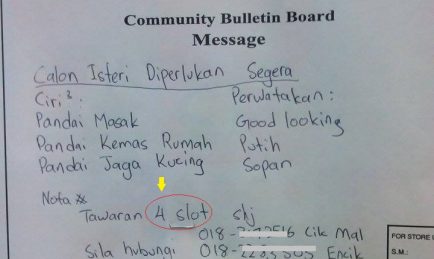 Community Bulletin Board
Message
Calon Isteri Diperlukan Segera
Ciri²: Perwatakan:
Pandai Masak Good looking
Pandai Kemas Rumah Putih
Pandai Jaga Kucing Sopan
Nota *
Tawaran 4 slot shj
018- 516 Cik Mal
Sila hubungi 018- Encik
FOR STORE
S.M.: